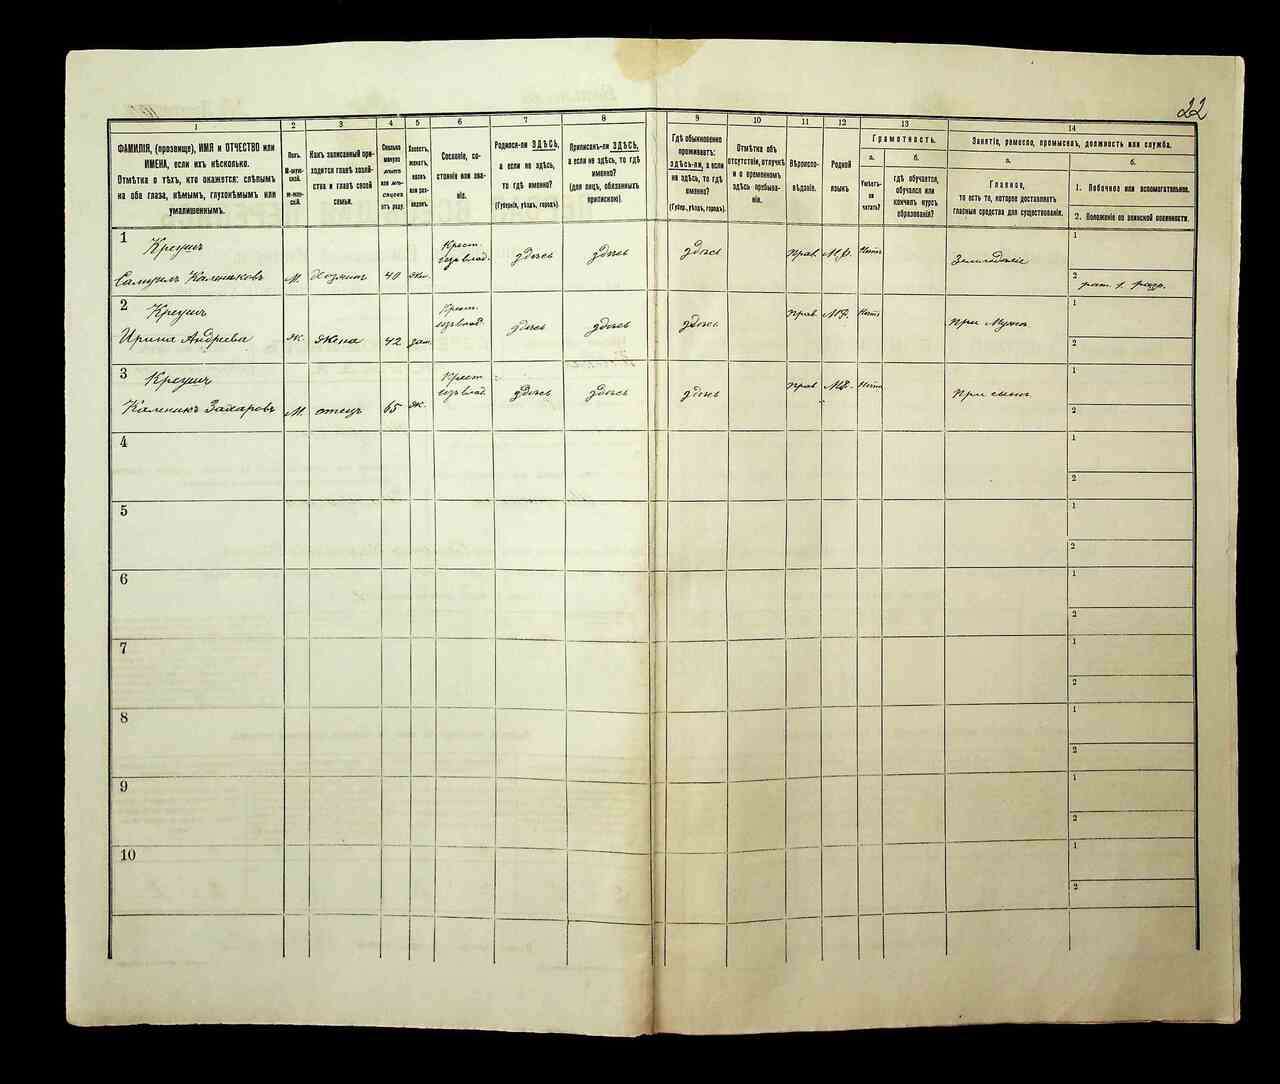 22
1
2
3
4
5
6
7
8
9
10
11
12
13
14
ФАМИЛІЯ, (прозвище), ИМЯ и ОТЧЕСТВО или
ИМЕНА, если ихъ нѣсколько.
Отмѣтка о тѣхъ, кто окажется: слѣпымъ
на оба глаза, нѣмымъ, глухонѣмымъ или
умалишеннымъ.
Полъ.
М-муж-
ской.
Ж-жен-
скій.
Какъ записанный при-
ходится главѣ хозяй-
ства и главѣ своей
семьи.
Сколько
минуло
лѣтъ
или мѣ-
сяцевъ
отъ роду.
Холостъ,
женатъ,
вдовъ
или раз-
веденъ.
Сословіе, со-
стояніе или зва-
ніе.
Родился-ли ЗДѢСЬ,
а если не здѣсь,
то гдѣ именно?
(Губернія, уѣздъ, городъ).
Приписанъ-ли ЗДѢСЬ,
а если не здѣсь, то гдѣ
именно?
(для лицъ, обязанныхъ
припискою).
Гдѣ обыкновенно
проживаетъ:
здѣсь-ли, а если
не здѣсь, то гдѣ
именно?
(Губер., уѣздъ, городъ).
Отмѣтка объ
отсутствіи, отлучкѣ
и о временномъ
здѣсь пребыва-
ніи.
Вѣроиспо-
вѣданіе.
Родной
языкъ.
Грамотность.
а.
б.
Умѣетъ-
ли
читать?
гдѣ обучается,
обучался или
кончилъ курсъ
образованія?
Занятіе, ремесло, промыселъ, должность или служба.
а.
б.
Главное,
то есть то, которое доставляетъ
главныя средства для существованія.
1. Побочное или вспомогательное.
2. Положеніе по воинской повинности.
1
Креушъ
Самуилъ Калениковъ М. Хозяинъ 40 жен.
Крест.
изъ влад.
здѣсь здѣсь здѣсь Прав. М.Р. Нѣтъ Земледѣліе
1
2
рат. 1. разр.
2
Креушъ
Ирина Андреева Ж. жена 42 зам.
Крест.
изъ влад.
здѣсь здѣсь здѣсь Прав. М.Р. Нѣтъ При мужѣ
1
2
3
Креушъ
Каленикъ Захаровъ М. отецъ 65 ж.
Крест.
изъ влад.
здѣсь здѣсь здѣсь Прав. М.Р. Нѣтъ При сынѣ
1
2
4
1
2
5
1
2
6
1
2
7
1
2
8
1
2
9
1
2
10
1
2